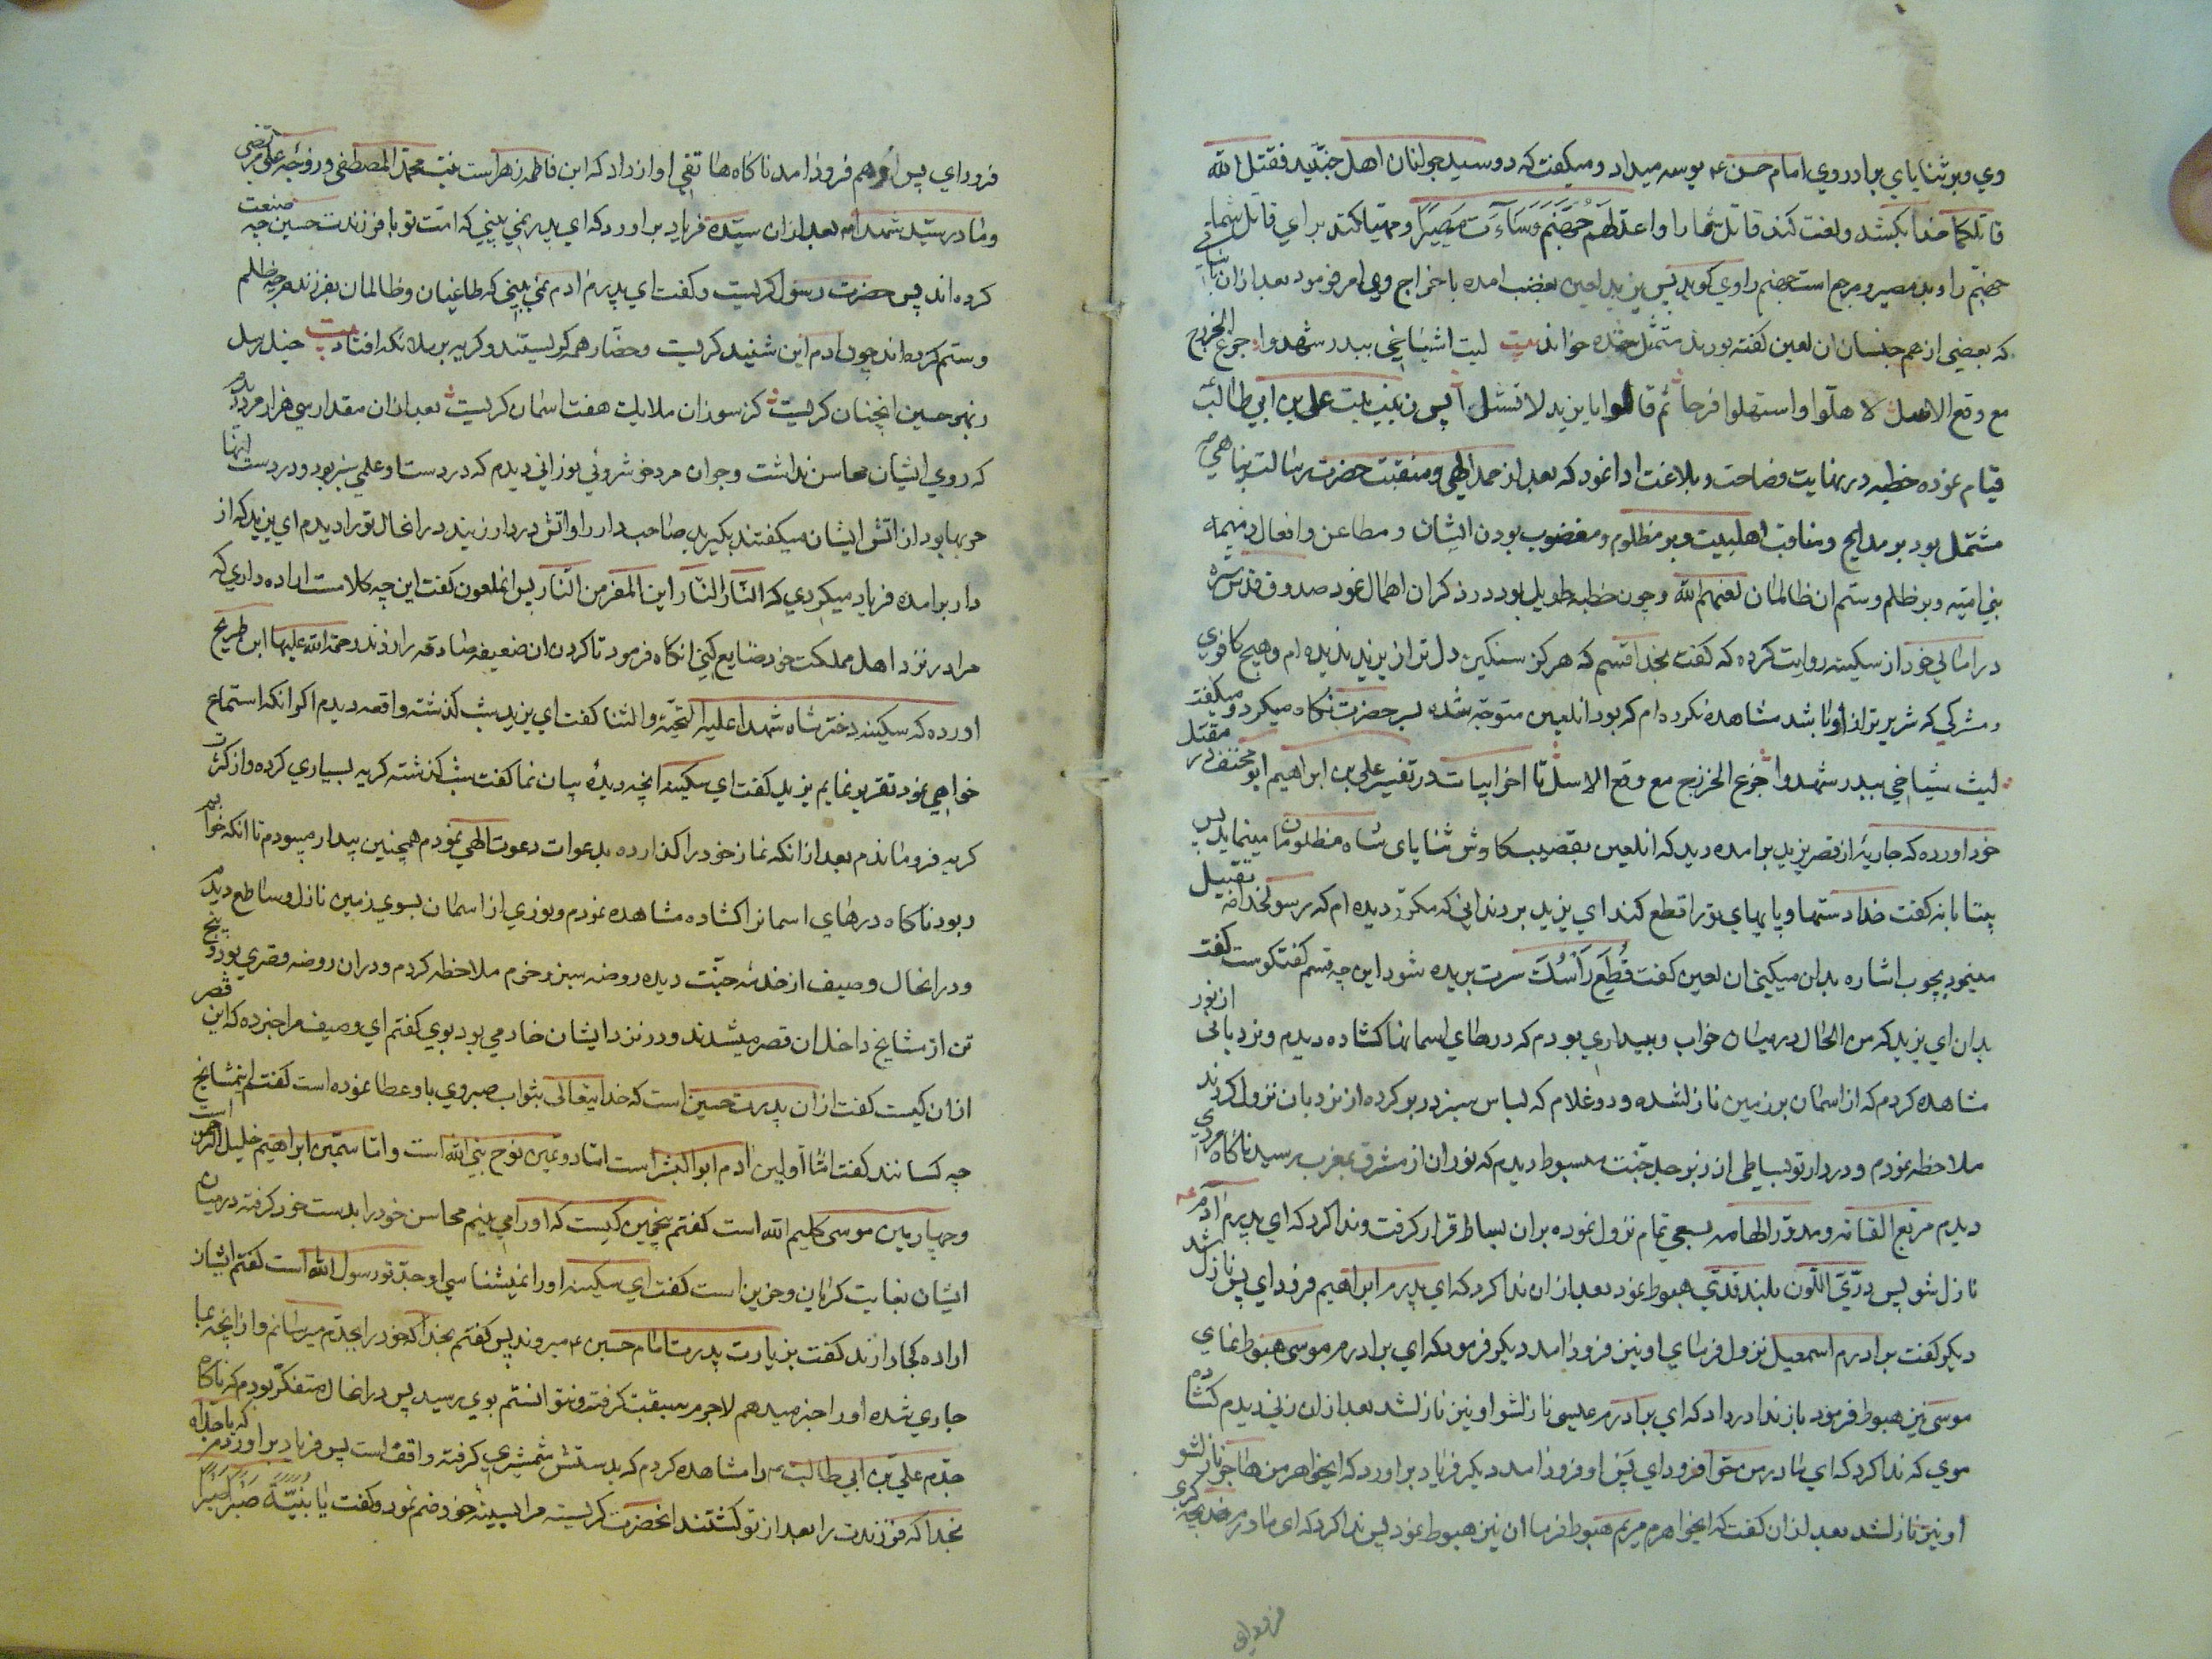 وي وبر ثناياي برادر وي امام حسن ع بوسه ميداد و ميكفت كه دو سيد جوانان اهل جنتيد فقتل الله
قاتلكما خدا بكشد و لعنت كند قاتل شما را و اعد لهم جهنم و ساءت مصيرا و مهيا كند براي قاتل شما
جهنم را و بد مصير و مرجع است جهنم راوي كويد پس يزيد لعين بغضب امده باخراج وي امر فرمود بعد ازان
كه بعضي از هم جنسان ان لعين كفته بودند متمثل شده خواند بيت ليت اشياخي ببدر شهدوا جزع الخزرج
مع وقع الاسل لاهلوا و استهلوا فرحا ثم قالوا يا يزيد لا تشل پس زينب بنت علي بن ابي طالب
قيام نموده خطبه در نهايت فصاحت و بلاغت ادا نمود كه بعد از حمد الهي و منقبت حضرت رسالت پناهي ص
مشتمل بود بر مدايح و مناقب اهلبيت و بر مظلوم و مغضوب بودن ايشان و مطاعن و افعال ذميمه
بني اميه و بر ظلم و ستم ان ظالمان لعنهم الله و چون خطبه طويل بود در ذكر ان اهمال نمود صدوق قدس سره
در امالي خود از سكينه روايت كرده كه كفت بخدا قسم كه هركز سنكين دل تر از يزيد نديده ام و هيچ كافري
و مشركي كه شرير تر از او باشد مشاهده نكرده ام كه بود انلعين متوجه شده بسر حضرت نكاه ميكرد و ميكفت
ليت شياخي ببدر شهدوا جزع الخزرج مع وقع الاسل تا اخر ابيات در تفسير علي بن ابراهيم ابو مخنف در مقتل
خود اورده كه جاريه از قصر يزيد برامده ديد كه انلعين بقضيب كاوش ثناياي شاه مظلومان مينمايد پس
بيتابانه كفت خدا دستها و پايهاي تو را قطع كند اي يزيد بر دنداني كه مكرر ديده ام كه رسولخدا ص تقبيل
مينمود بچوب اشاره بدان ميكني ان لعين كفت قطع راسك سرت بريده شود اين چه قسم كفتكوست كفت
بدان اي يزيد كه من الحال در ميان خواب و بيداري بودم كه درهاي اسمانها كشاده ديدم و نردباني از نور
مشاهده كردم كه از اسمان بر زمين نازلشده و دو غلام كه لباس سبز در بر كرده از نردبان نزول كردند
ملاحظه نمودم و در دار تو بساطي از زبرجد جنت مبسوط ديدم كه نور ان از مشرق بمغرب رسيد ناكاه مردي
ديدم مربع القامه و مدور الهامه بسعي تمام نزول نموده بران بساط قرار كرفت و ندا كرد كه اي پدرم آدم ع
نازل شو پس دري اللون بلند قدي هبوط نمود بعد ازان ندا كرد كه اي پدرم ابراهيم فرود اي پس نازل شد
ديكر كفت برادرم اسمعيل نزول فرماي او نيز فرود امد ديكر فرمود كه اي برادرم موسي هبوط نماي
موسي نيز هبوط فرمود باز ندا در داد كه اي برادرم عيسي نازلشو او نيز نازلشد بعد ازان زني ديدم كشاده
موي كه ندا كرد كه اي مادر من حوا فرود اي پس او فرود امد ديكر فرياد براورد كه ايخواهر من هاجر نازلشو
او نيز نازلشد بعد ازان كفت كه ايخواهرم مريم هبوط فرما ان نيز هبوط نمود پس ندا كرد كه اي مادرم خديجه كبري
فرود اي
فرود اي پس او هم فرود امد ناكاه هاتفي اواز داد كه اين فاطمه زهراست بنت محمد المصطفي و زوجه علي مرتضي
و مادر سيد شهدا بعد ازان سيده فرياد براورد كه اي پدر نمي بيني كه امت تو با فرزندت حسين چه صنعت
كرده اند پس حضرت رسول كريست و كفت اي پدرم ادم نمي بيني كه طاغيان و ظالمان بفرزندم چه ظلم
و ستم كرده اند چون ادم اين شنيد كريست و حضار همه كريستند و كريه بر ملائكه افتاد بيت خيل رسل
بهر حسين انچنان كريست كز سوز ان ملايك هفت اسمان كريست بعد ازان مقدار سي هزار مرد ديدم
كه روي ايشان محاسن نداشت و جوان مرد خوشروئي نوراني ديدم كه در دست او علمي سبز بود و در دست انها
حربها بود از اتش ايشان ميكفتند بكيريد صاحب دار را و اتش در دار زنيد درانحال تو را ديدم اي يزيد كه از
دار برامده فرياد ميكردي كه النار النار اين المفر من النار پس انملعون كفت اين چه كلامست اراده داري كه
مرا در نزد اهل مملكت خود ضايع كني انكاه فرمود تا كردن ان ضعيفه صادقه را زدند رحمة الله عليها ابن طريح
اورده كه سكينه دختر شاه شهدا عليه التحية و الثنا كفت اي يزيد شب كذشته واقعه ديدم اكر انكه استماع
خواهي نمود تقرير نمايم يزيد كفت اي سكينه انچه ديدۀ بيان نما كفت شب كذشته كريه بسياري كرده و از كثرت
كريه فرو ماندم بعد ازانكه نماز خود را كذارده بدعوات دعوت الهي نمودم همچنين بيدار ميبودم تا انكه خوابم
ربود ناكاه درهاي اسمانرا كشاده مشاهده نمودم و نوري از اسمان بسوي زمين نازل و ساطع ديدم
و درانحال وصيف از خدمه جنت ديده روضه سبز و خرم ملاحظه كردم و دران روضه قصري بود و پنج
تن از مشايخ داخل ان قصر ميشدند و در نزد ايشان خادمي بود بوي كفتم اي وصيف مرا خبر ده كه اين قصر
ازان كيست كفت ازان پدرت حسين است كه خدايتعالي بثواب صبر وي باو عطا نموده است كفتم اينمشايخ
چه كسانند كفت اما اولين ادم ابو البشر است اما دومين نوح نبي الله است و اما سيمين ابراهيم خليل الرحمن است
و چهارمين موسي كليم الله است كفتم پنجمين كيست كه او را مي بينم محاسن خود را بدست خود كرفته در ميان
ايشان بغايت كريان و حزين است كفت اي سكينه او را نميشناسي او جد تو رسول الله است كفتم ايشان
اراده كجا دارند كفت بزيارت پدرت امام حسين ع ميروند پس كفتم بخدا كه خود را بجدم ميرسانم و از انچه بما
جاري شده او را خبر ميدهم لاجرم سبقت كرفته و نتوانستم بوي رسيد پس درانحال متفكر بودم كه ناكاه
جدم علي بن ابي طالب ع را مشاهده كردم كه بدستش شمشيري كرفته واقف است پس فرياد براوردم كه يا جداه
بخدا كه فرزندت را بعد از تو كشتند انحضرت كريسته مرا بسينۀ خود ضم نمود و كفت يا بنية صبرا صبرا